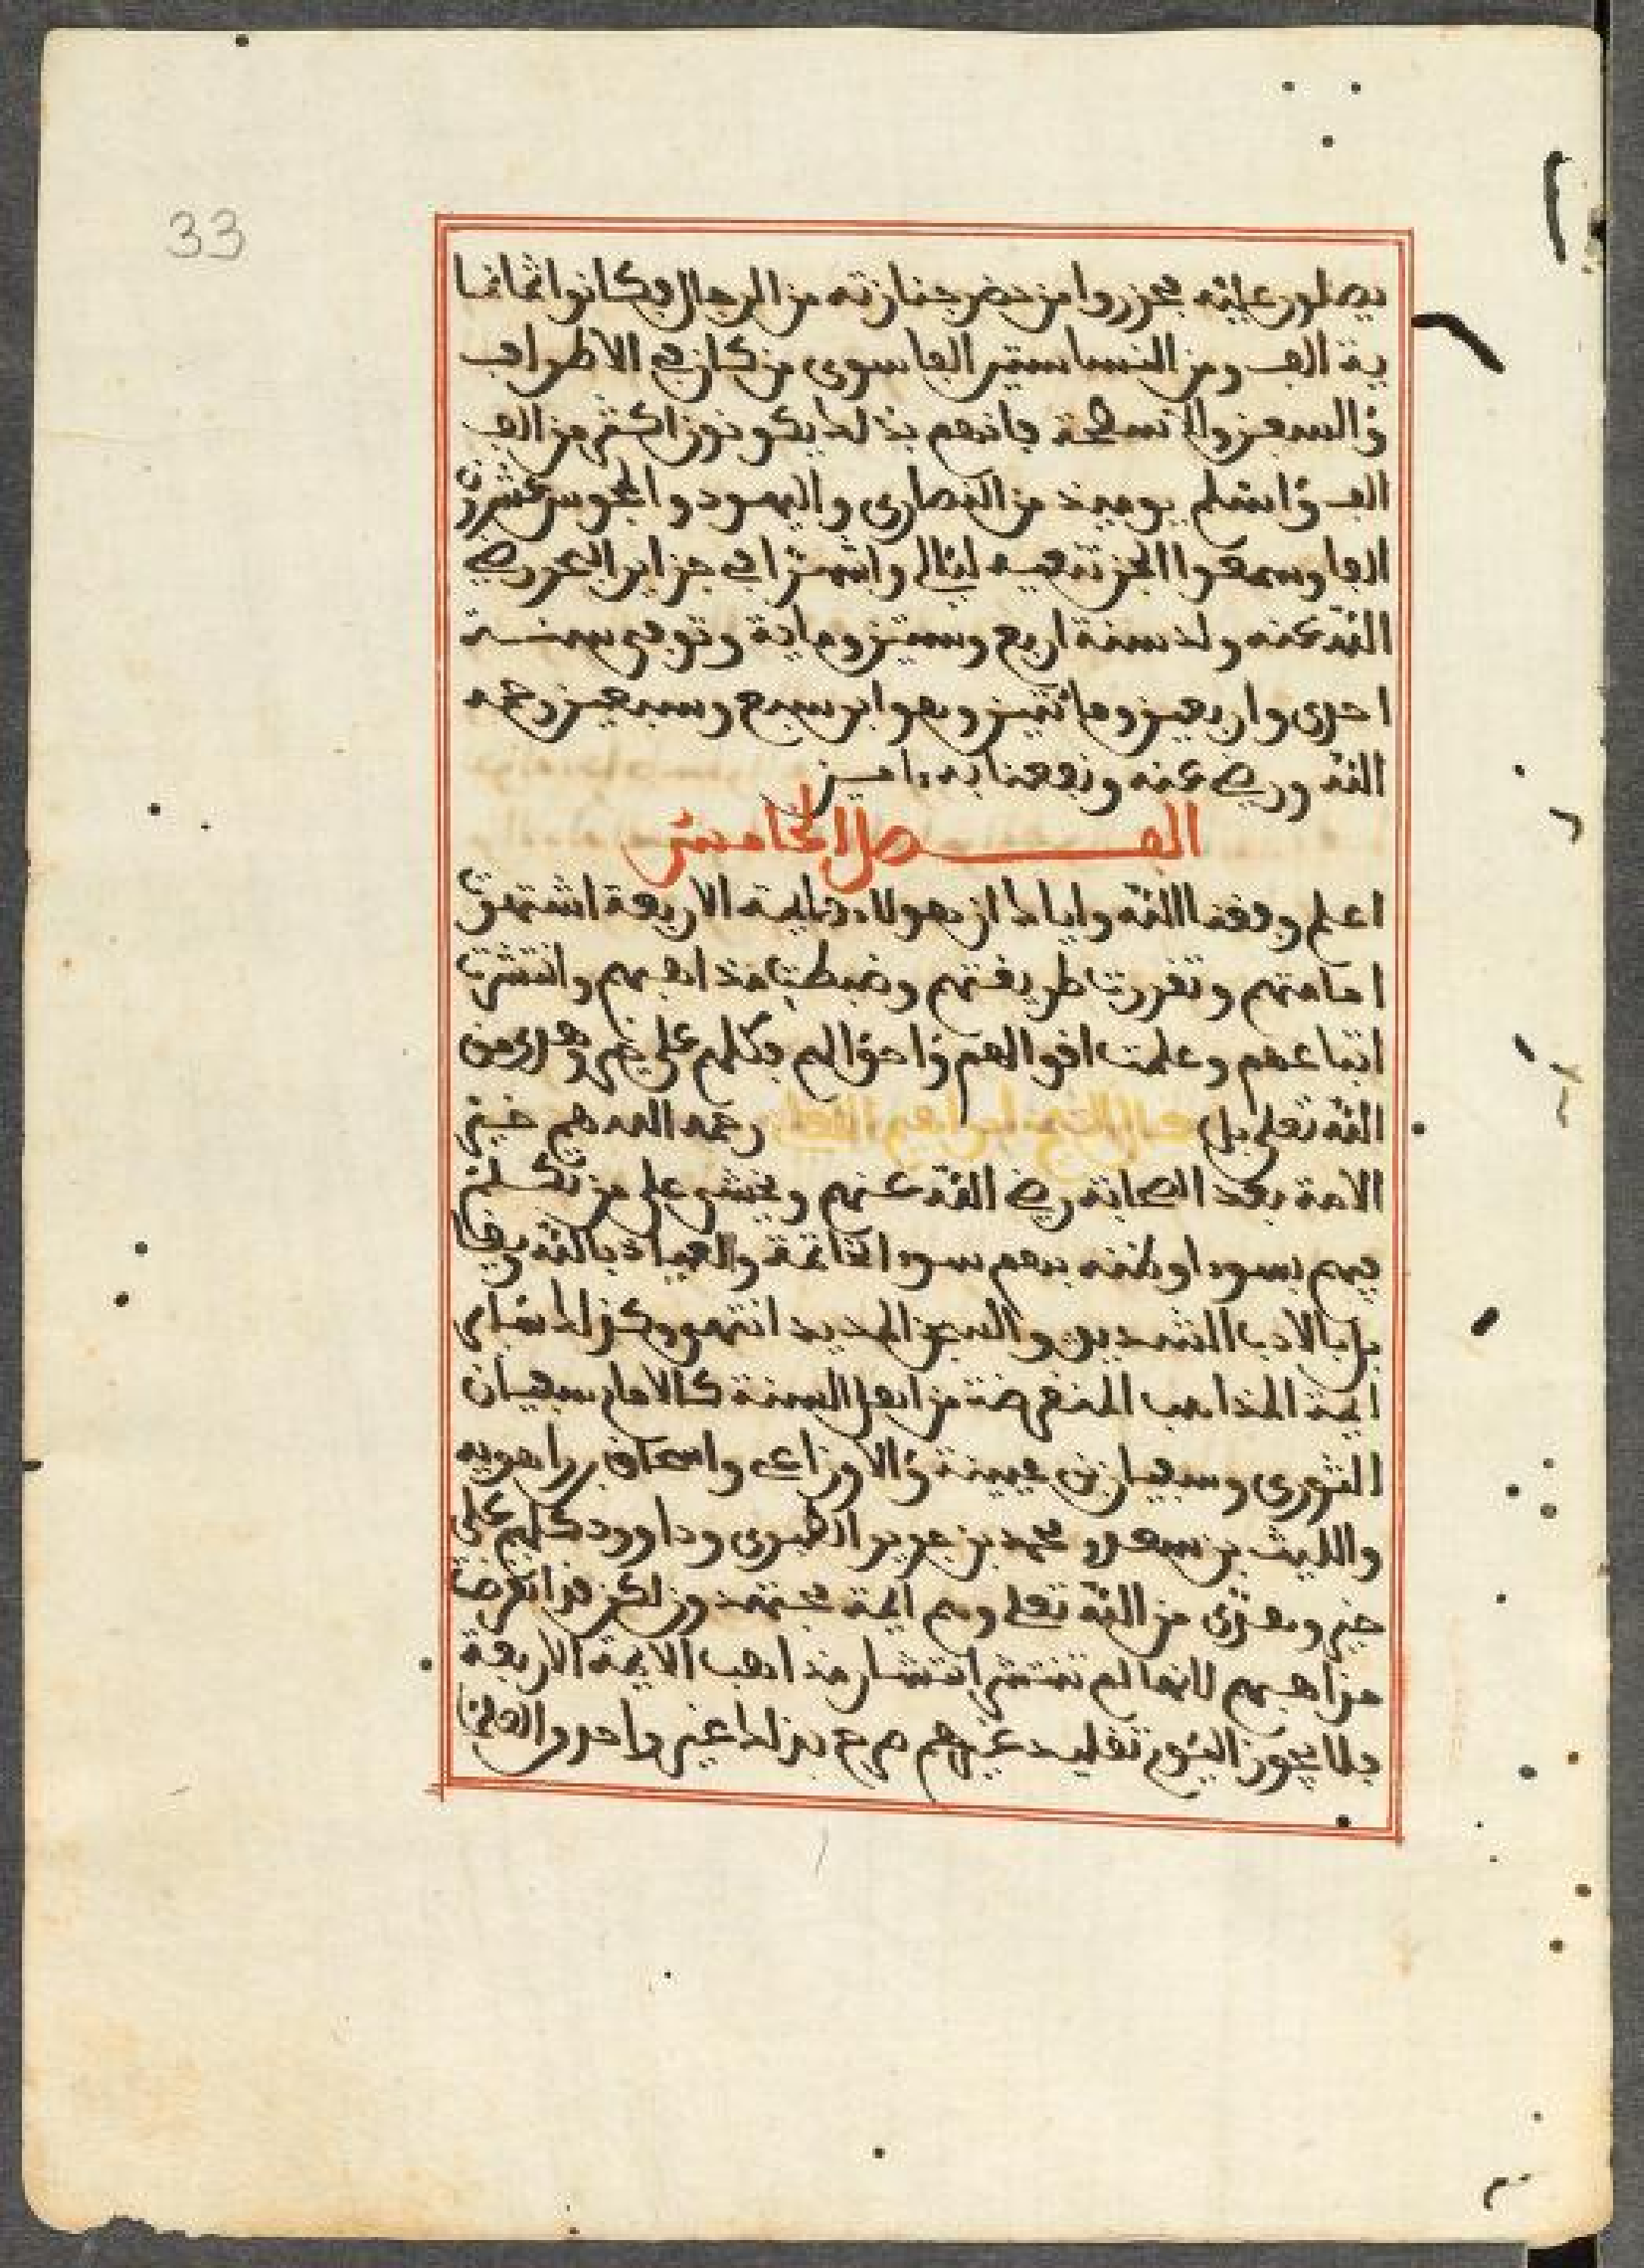 33
يصلون عليه فحزروا من حضر جنازته من الرجال فكانوا ثمانما
ية الف ومن النسا ستين الفا سوى من كان في الاطراف
والسفن والاسطحة فانهم بذلك يكونون اكثر من الف
الف واسلم يوميذ من النصارى واليهود والمجوس عشرون
الفا وسمعوا الجن تنعيه ليالي واشتهرا في جزاير البحر رضي
الله عنه ولد سنة اربع وستين وماية وتوفي سنة
احدى واربعين ومائتين وهو ابن سبع وسبعين رحمه
الله ورضي عنه ونفعنا به ءامين
الفصل الخامس
اعلم وفقنا الله واياك ان هولاء الايمة الاربعة اشتهرت
امامتهم وتقررت طريقتهم وضبطت مذاهبهم وانتشرت
اتباعهم وعلمت اقوالهم واحوالهم فكلهم على خير وهدى من
الله تعلى بل قال الشيخ ابراهيم اللقاني رحمه الله هم خير
الامة بعد الصحابة رضي الله عنهم ويخشى على من تكلم
فيهم بسوء او ظنه بهم سوء الخاتمة والعياذ بالله
بل بالادب الشديد والسجن المديد انتهى وكذلك سائر
ايمة المذاهب المنقرضة من اهل السنة كالامام سفيان
الثوري وسفيان بن عيينة والاوزاعي واسحاق بن راهويه
والليث بن سعد ومحمد بن جرير الطبري وداوود كلهم على
خير وهدى من الله تعلى وهم ايمة مجتهدون لكن قد انقرضت
مذاهبهم لانها لم تنتشر انتشار مذاهب الايمة الاربعة
فلا يجوز اليوم تقليد غيرهم صرح بذلك غير واحد